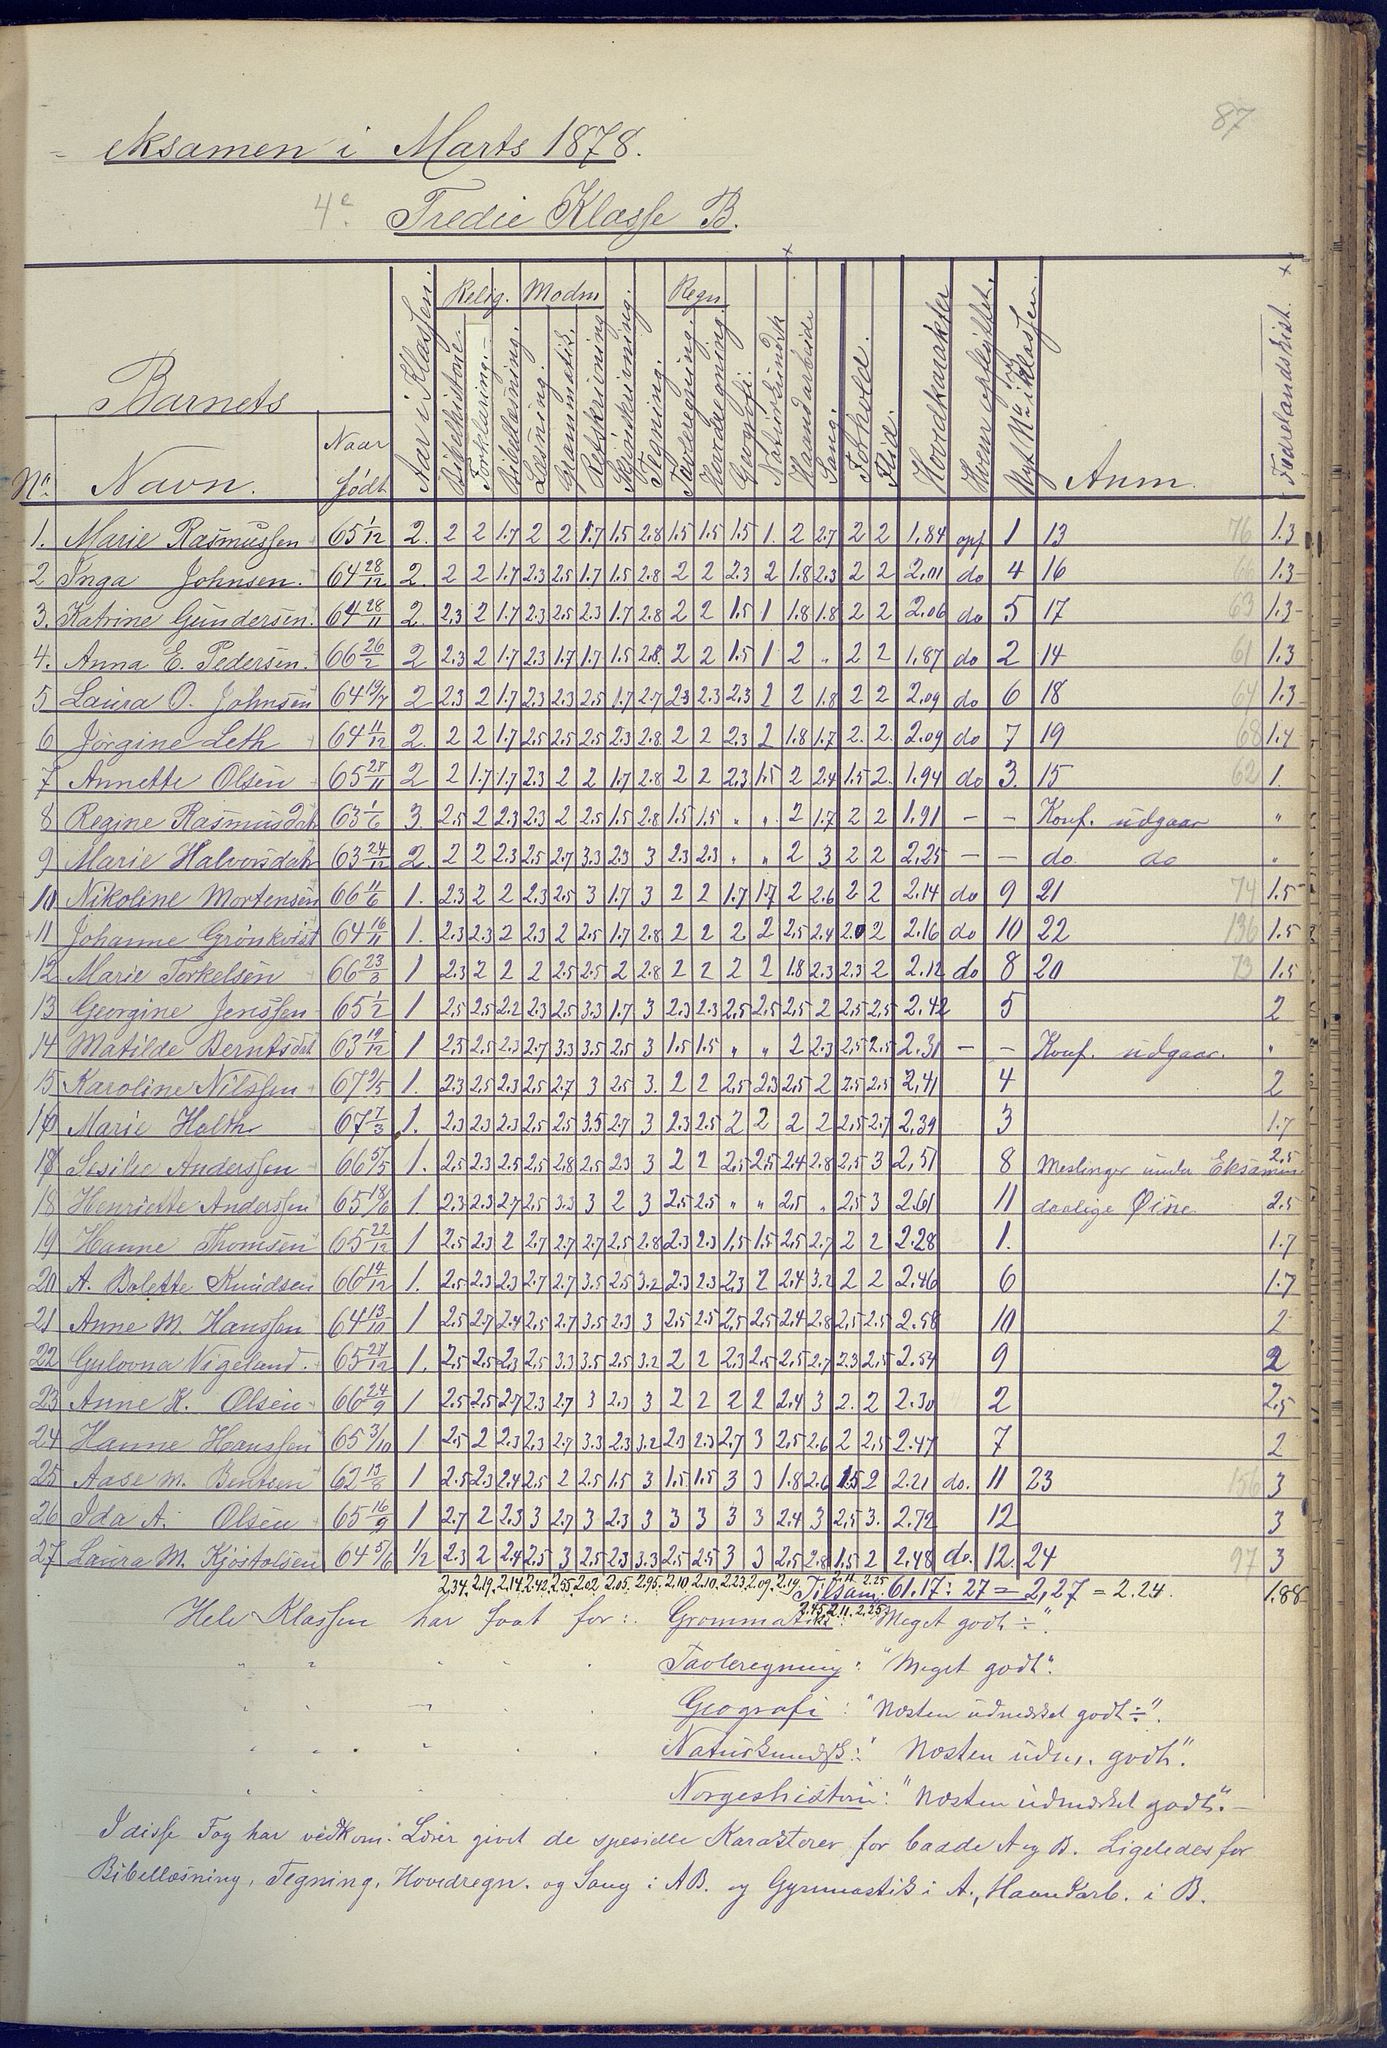 87
= eksamen i Marts 1878.
4e Tredie Klasse B.
Barnets
No. Navn. Naar født Aar i Klassen. Relig. Bibelhistorie. Forklaring. Bibellæsning. Modm Læsning. Grammatik. Retskrivning. Skjønskrivning. Tegning. Regn. Tavleregning. Hovedregning. Geografi. Naturkundsk × Haandarbeide Sang. Forhold. Flid. Hovedkarakter Hvem opflyttet. Nyt No i Klassen. Anm. Fædrelandshist. ×
1. Marie Rasmussen 65 1/12 2. 2 2 1.7 2 2 1.7 1.5 2.8 1.5 1.5 1.5 1. 2 2.7 2 2 1.84 opf 1 13 76 1.3
2 Inga Johnsen. 64 28/12 2. 2 2 1.7 2.3 2.5 1.7 1.5 2.8 2 2 2.3 2 1.8 2.3 2 2 2.01 do 4 16 66 1.3
3. Katrine Gundersen. 64 28/11 2 2.3 2 1.7 2.3 2.5 2.3 1.7 2.8 2 2 1.5 1 1.8 1.8 2 2 2.06 do 5 17 63 1.3
4. Anna E. Pedersen. 66 26/2 2 2.3 2 1.7 2.3 1.7 1.7 1.5 2.8. 2 2 1.5 1 2 „ 2 2 1.87 do 2 14 61 1.3
5 Laura O. Johnsen 64 19/7 2 2.3 2 1.7 2.3 2.3 2.5 1.7 2.7 2.3 2.3 2.3 2 2 1.8 2 2 2.09 do 6 18 64 1.3
6 Jørgine Leth 64 11/12 2. 2 2 1.7 2.5 2.5 2.5 2.3 2.8 2 2 2.3 2 1.8 1.7 2. 2. 2.09 do 7 19 68 1.7
7 Annette Olsen 65 27/11 2 2 1.7 1.7 2.3 2 2 1.7 2.8 2 2 2.3 1.5 2 2.4 1.5 2. 1.94 do 3. 15 62 1.
8 Regine Rasmusdatr 63 1/6 3. 2.5 2 2.3 2.3 2 2.5 1.5 2.8 1.5 1.5 „ „ 2 1.7 2 2 1.91 — — Konf. udgaar „
9 Marie Halvorsdatr 63 24/12 2. 2 2 2.3 2.5 2.7 3.3 2.3 3 2.3 2.3 „ „ 2 3 2 2 2.25 — — do do „
10 Nikoline Mortensen 66 11/6 1. 2.3 2 2 2.3 2.5 3 1.7 3 2 2 1.7 1.7 2 2.6 2 2 2.14 do 9 21 74 1.5
11 Johanne Grönkvist 64 16/11 1. 2.3 2.3 2 2.3 2 2.5 1.7 2.8 2 2 2 2 2.5 2.4 2.0 2 2.16 do 10 22 136 1.5
12 Marie Torkelsen 66 23/3 1 2.3 2 2 2 2.5 2.5 2 2.8 2 2 2 2 1.8 2.3 2.3 2 2.12 do 8 20 73 1.5
13 Georgine Jenssen 65 1/2 1 2.5 2.5 2.2 2.3 2.5 3.3 1.7 3 2.3 2.3 2.5 2.5 2.5 2 2.5 2.5 2.42 5 2
14 Matilde Berntsdat 63 19/12 1 2.5 2.5 2.3 2.7 3.3 3.5 2.5 3 1.5 1.5 „ „ 2 2.3 2.5 2.5 2.31 — — Konf. udgaar. „
15 Karoline Nilssen 67 9/5 1. 2.3 2.5 2.3 2.5 2.7 3 2.5 3. 2 2 2.5 2.3 2.5 2 2.5 2.5 2.41 4 2
16 Marie Holth 67 7/3 1. 2.3 2.3 2.3 2.5 2.5 3.5 2.7 3 2.3 2.5 2 2 2 2 2.5 2.7 2.39 3 1.7
17 Sesilie Anderssen 66 5/5 1. 2.5 2.3 2.5 2.5 2.8 2.5 2.3 3 2 2 2.5 2.5 2.4 2.8 2.5 3 2.51 8 Meslinger under Eksamen 2.5
18 Henriette Anderssen 65 18/6 1. 2.3 2.3 2.7 2.5 3.3 3 2 3 2.5 2.5 „ „ 2.5 „ 2.5 3 2.61 11 daalige Øine 2.5
19 Hanne Thomsen 65 22/12 1 2.5 2.3 2 2.7 2.7 2.7 2.5 2.8 2.3 2.3 1.5 1.5 2.5 2.7 2 2 2.28 1. 1.7
20 A. Bolette Knudsen 66 14/12 1. 2.5 2.3 2.3 2.7 2.7 3.5 2.5 3.2 2.3 2.3 2.3 2 2.4 3.2 2 2 2.46 6 1.7
21 Anne M. Hanssen 64 13/10 1 2.5 2.7 2.4 2.5 2.7 3.5 2.3 3 2.5 2.5 2.5 2.5 2.4 2.8 2.5 2.5 2.58 10 2
22 Gulovna Vigeland. 65 27/12 1. 2.5 2.5 2.3 2.5 3.3 3.5 2.5 3.2 2 2 2.3 2.5 2.5 2.7 2.3 2.5 2.54 9 2
23 Anne K. Olsen 66 24/9 1 2.5 2.5 2.7 2.3 2.7 3 2.3 3 2 2 2 2 2.4 3 2. 2 2.30 2 2.5
24 Hanne Hanssen 65 3/10 1 2.5 2 2.3 2.3 2.7 3.3 2.3 3.2 2.3 2.3 2.7 3 2.5 2.6 2 2.5 2.47 7 2
25 Aase M. Bentsen 62 13/8 1 2.5 2.3 2.4 2.5 2 2.5 1.5 3 1.5 1.5 3 3 1.8 2.6 1.5 2 2.21 do. 11 23 156 3
26 Ida A. Olsen 65 16/9 1 2.7 2 2.3 3 2.7 3 2.3 3 3 3 3 3 2.4 3 2.5 3. 2.72 12 3
27 Laura M. Kjöstolsen 64 5/6 1/2 2.3 2 2.4 2.5 3 2.5 2.3 3.3 2.5 2.5 3 3 2.5 2.8 1.5 2 2.48 do. 12. 24 97 3
2.34. 2.19. 2.14 2.42. 2.55. 2.62. 2.05. 2.95. 2.10. 2.10. 2.23 2.09. 2.19. Tilsam. 61.17 : 27 = 2,27 = 2.24. 1.88
2.45 2.11. 2.25
Hele Klassen har faat for: Grammatik: "Meget godt ÷".
" " " " " Tavleregning: "Meget godt".
" " " " " Geografi: "Næsten udmærket godt ÷".
" " " " " Naturkundsk: "Næsten udm. godt".
" " " " " Norgeshistorie: "Næsten udmærket godt". —
I disse Fag har vedkom. Lærer givet de spesielle Karakterer for baade A og B. Ligeledes for
Bibellæsning, Tegning, Hovedregn. og Sang i AB. og Gymnastik i A., Haandarb. i B.